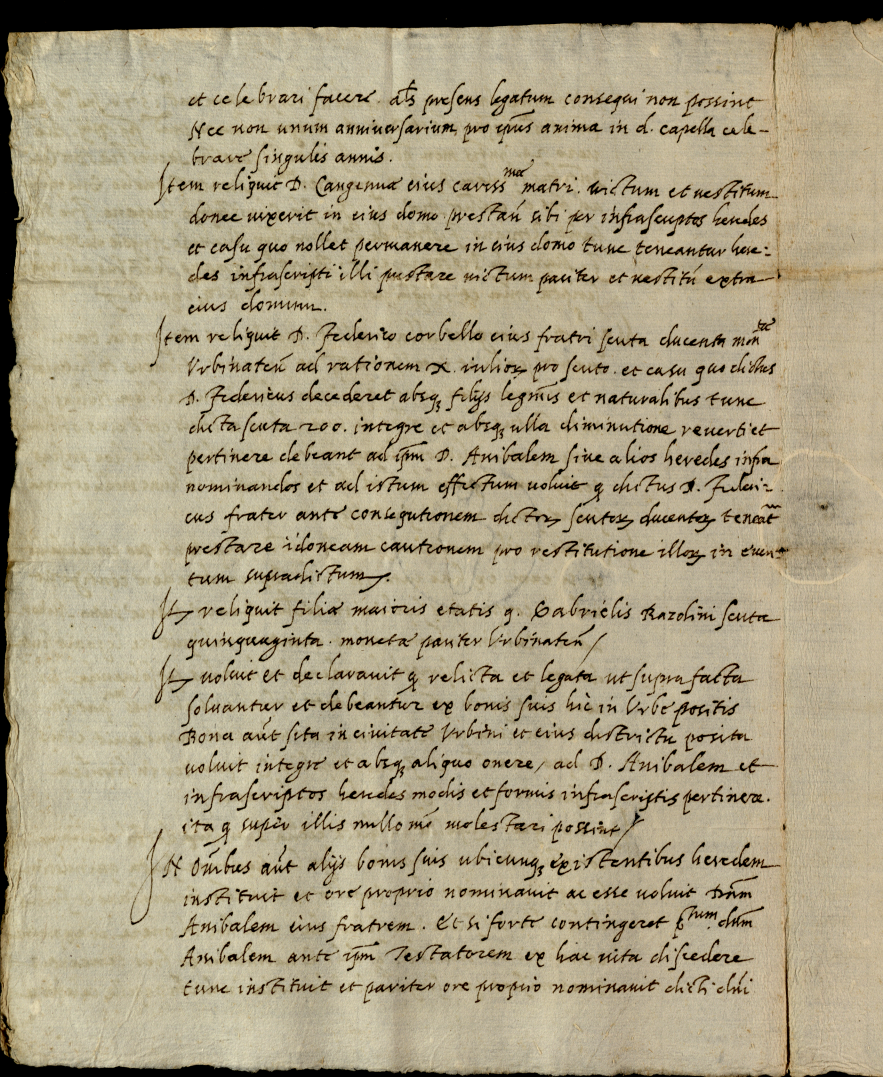 et celebrari facere. als presens legatum consequi non possint
Nec non unum anniversarium pro ipsius anima in d. capella cele-
brare singulis annis.
Item reliquit D. Cangenuæ eius cariss.mæ matri. victum et vestitum
donec vixerit in eius domo prestañ sibi per infrascriptos heredes
et casu quo nollet permanere in eius domo tunc teneantur here-
des infrascripti illi prestare victum pariter et vestitũ extra
eius domum.
Item reliquit D. Federico corbello eius fratri scuta ducenta mon.tæ
Urbinateñ ad rationem X. iulioꝝ pro scuto. et casu quo dictus
D. Federicus decederet absqꝫ filijs legmis et naturalibus tunc
dicta scuta 200. integre et absqꝫ ulla diminutione reverti et
pertinere debeant ad ipm D. Anibalem sive alios heredes infra
nominandos et ad istum effectum voluit q̃ dictus D. Federi-
cus frater ante consequtionem dictoꝝ scutoꝝ ducentoꝝ teneat
prestare idoneam cautionem pro restitutione illoꝝ in even-
tum supradictum.
It. reliquit filiæ maioris etatis q. Gabrielis Razolini scuta
quinquaginta. monetæ pariter Urbinateñ /
It. voluit et declaravit q̃ relicta et legata ut supra facta
solvantur et debeantur ex bonis suis hic in Urbe positis
Bona aũt sita in civitate Urbini et eius districtu posita
voluit integre et absqꝫ aliquo onere / ad D. Anibalem et
infrascriptos heredes modis et formis infrascriptis pertinere.
ita q̃ super illis nullo mõ molestari possint /
IN Omibus aũt alijs bonis suis ubicunqꝫ existentibus heredem
instituit et ore proprio nominavit ac esse voluit Dnm
Anibalem eius fratrem. Et si forte contingeret dum
Anibalem ante ipm Testatorem ex hac vita discedere
tunc instituit et pariter ore proprio nominavit dicti dni